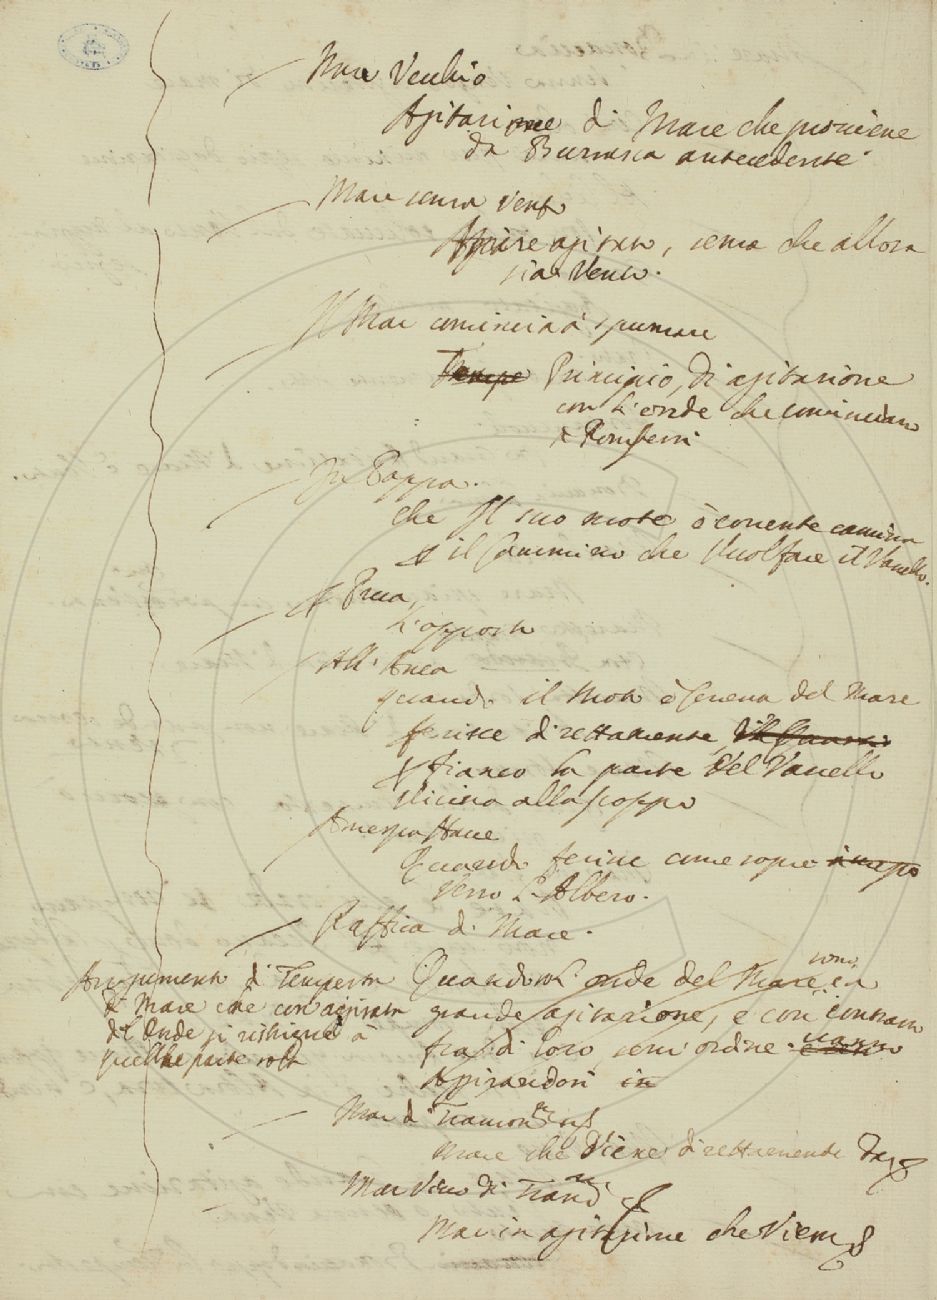 Mare Vecchio
Agitazione di Mare che proviene
da Burrasca antecedente.
Mare senza Vento
Apire agitato, senza che allora
sia Vento.
Il Mar comincia à spumare
Principio, di agitazione
con l'onde che cominciano
à Rompersi
In Poppa.
che Il suo moto ò corrente camina
il Cammino che Vuol fare il Vascello.
Prua,
L'opposto
All' Anca
quando il moto ò Serena del Mare
ferisce direttamente
fianco la parte del Vascello
Vicina alla poppa
A mezza Nave
Quando ferisce come sopra
verso L'Albero.
Raffica di Mare.
Argumento di Tempesta
di Mare che così agitato
di Onde si ristigne à
quella parte sola
Quando l'onde del Mare sono in
grande agitazione, e con contrasto
fra di loro senz'ordine.
Agitandosi in
Mar di Tramon.na
Mare che Viene direttamente Da
Mar Vivo di Tram.na
Mar in agitazione che Viene